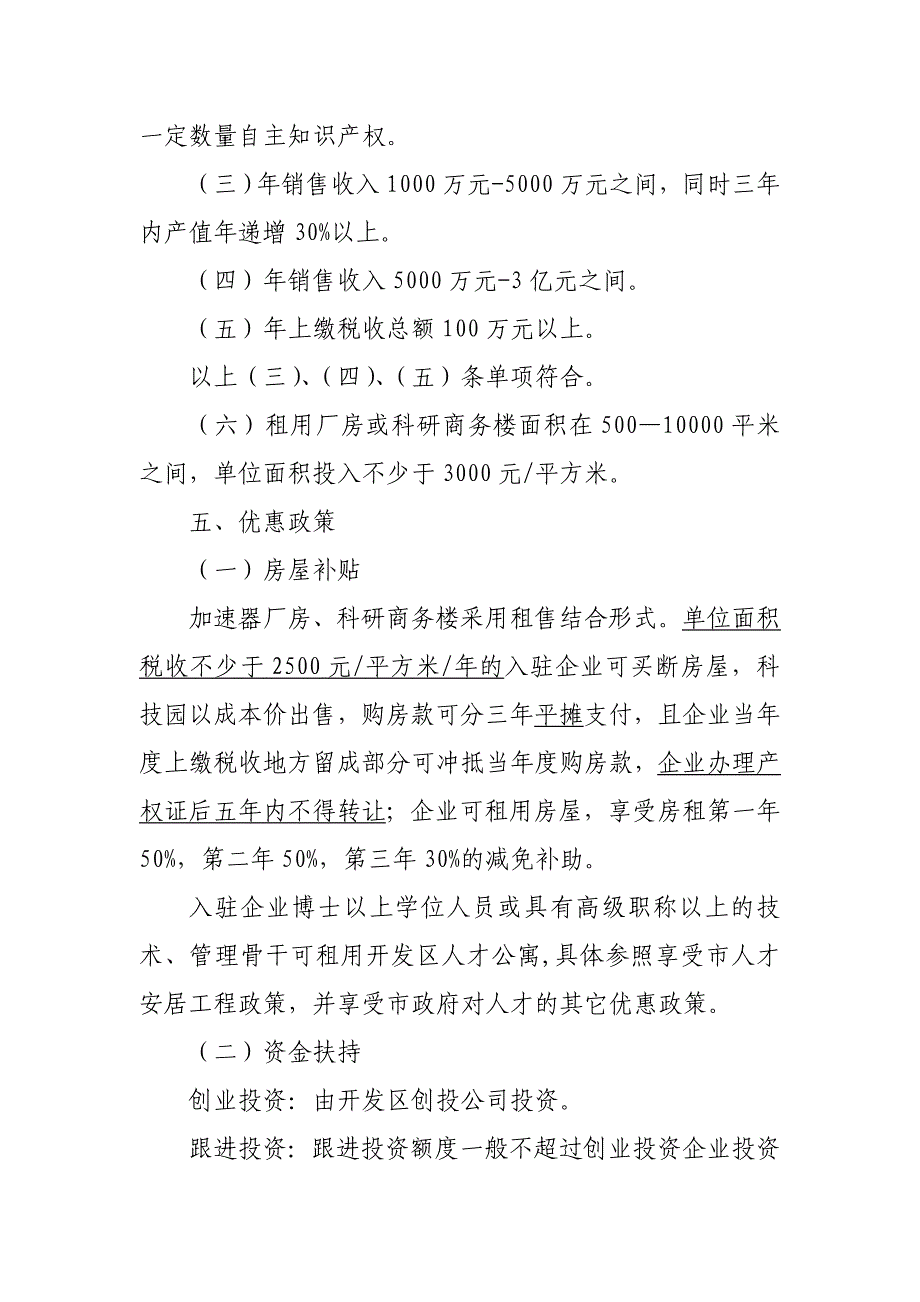 一定数量自主知识产权。
（三）年销售收入 1000 万元-5000 万元之间，同时三年
内产值年递增 30%以上。
（四）年销售收入 5000 万元-3 亿元之间。
（五）年上缴税收总额 100 万元以上。
以上（三）、（四）、（五）条单项符合。
（六）租用厂房或科研商务楼面积在 500—10000 平米
之间，单位面积投入不少于 3000 元/平方米。
五、优惠政策
（一）房屋补贴
加速器厂房、科研商务楼采用租售结合形式。单位面积
税收不少于 2500 元/平方米/年的入驻企业可买断房屋，科
技园以成本价出售，购房款可分三年平摊支付，且企业当年
度上缴税收地方留成部分可冲抵当年度购房款，企业办理产
权证后五年内不得转让；企业可租用房屋，享受房租第一年
50%，第二年 50%，第三年 30%的减免补助。
入驻企业博士以上学位人员或具有高级职称以上的技
术、管理骨干可租用开发区人才公寓,具体参照享受市人才
安居工程政策，并享受市政府对人才的其它优惠政策。
（二）资金扶持
创业投资：由开发区创投公司投资。
跟进投资：跟进投资额度一般不超过创业投资企业投资